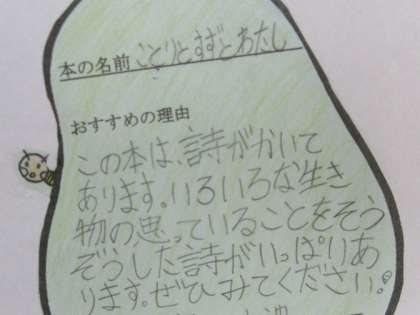 本の名前 ことりとすずとわたし
おすすめの理由
この本は、詩がかいて
あります。いろいろな生き
物の思っていることをそう
ぞうした詩がいっぱりあ
ります。ぜひみてください。